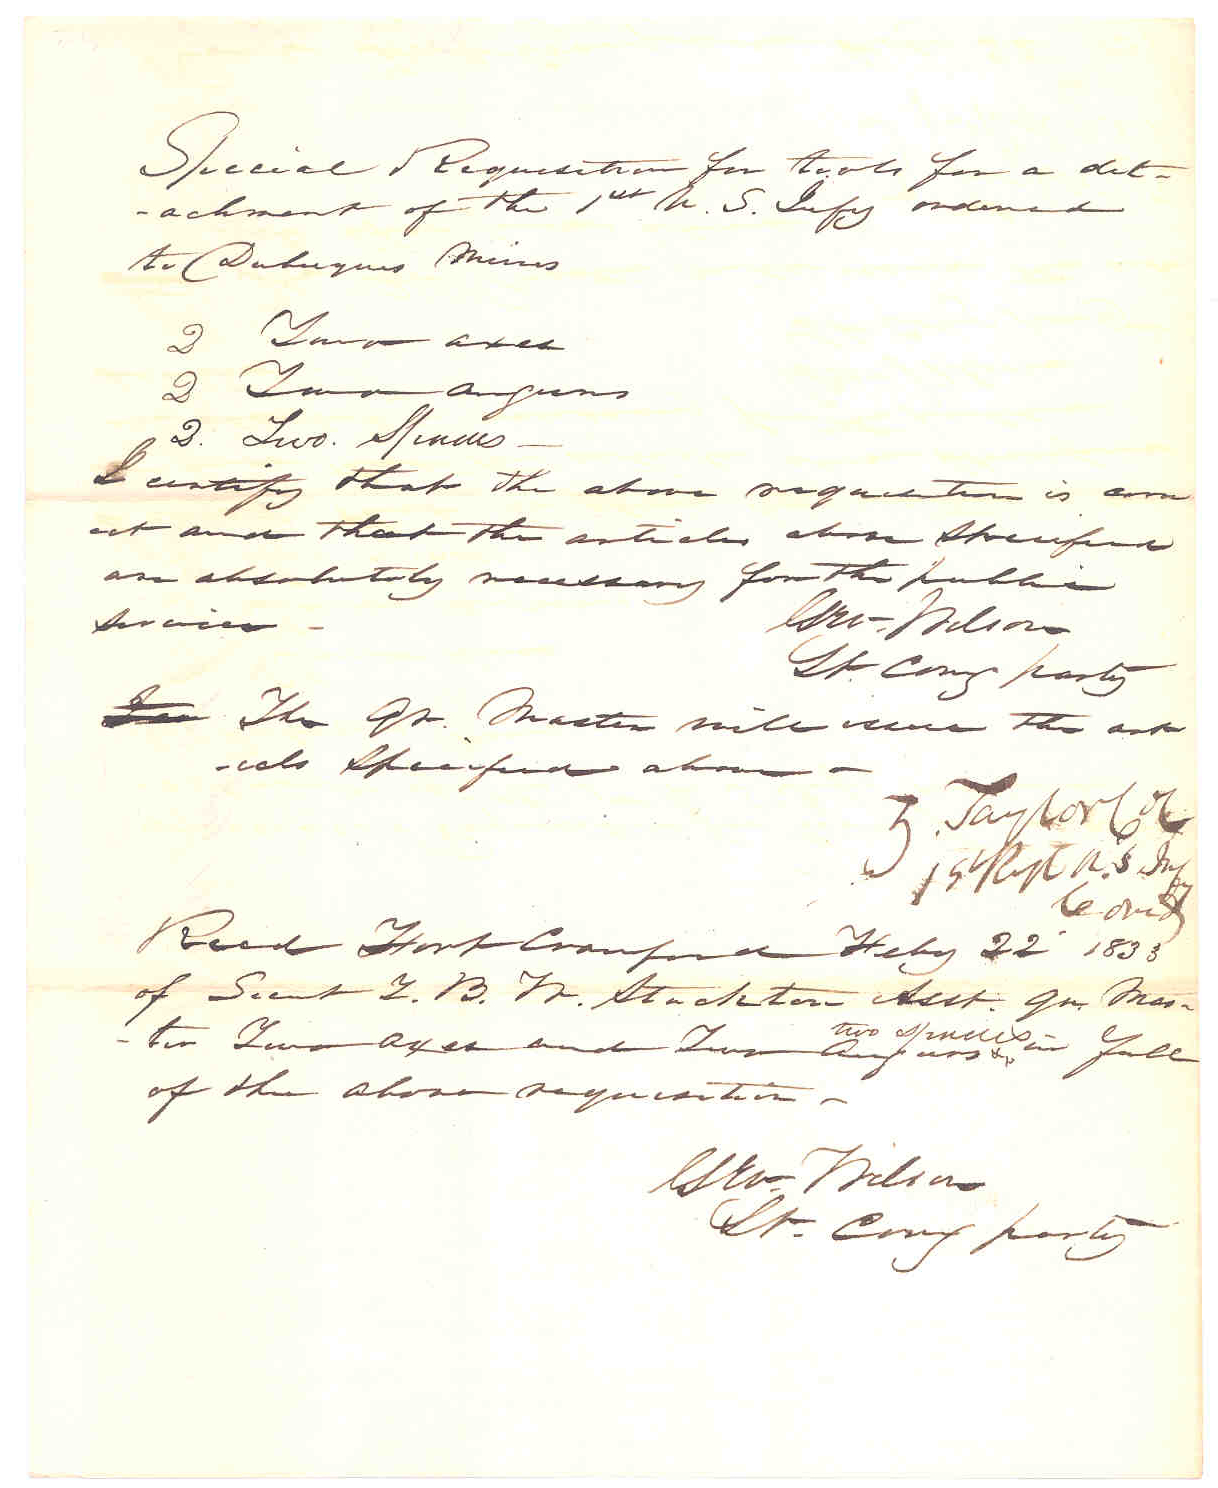 Special Requisition for tools for a det-
-achment of the 1st U. S. Infy ordered
to Dubuques Mines
2 Two axes
2 Two augurs
2. Two. Spades —
I certify that the above requisition is corr
ect and that the articles above specified
are absolutely necessary for the public
service -
Geo. Wilson
Lt. Comg party
The Qr. Master will issue the art
-icls specified above -
Z. Taylor Col
1st Regt U. S. Infy
Comdg
Recd Fort Crawford Feby 22 1833
of Lieut J. B. W. Stockton Asst. Qr. Mas-
two spades
-ter Two axes and Two Augurs in full
of the above requisition -
Geo. Wilson
Lt. Comg party